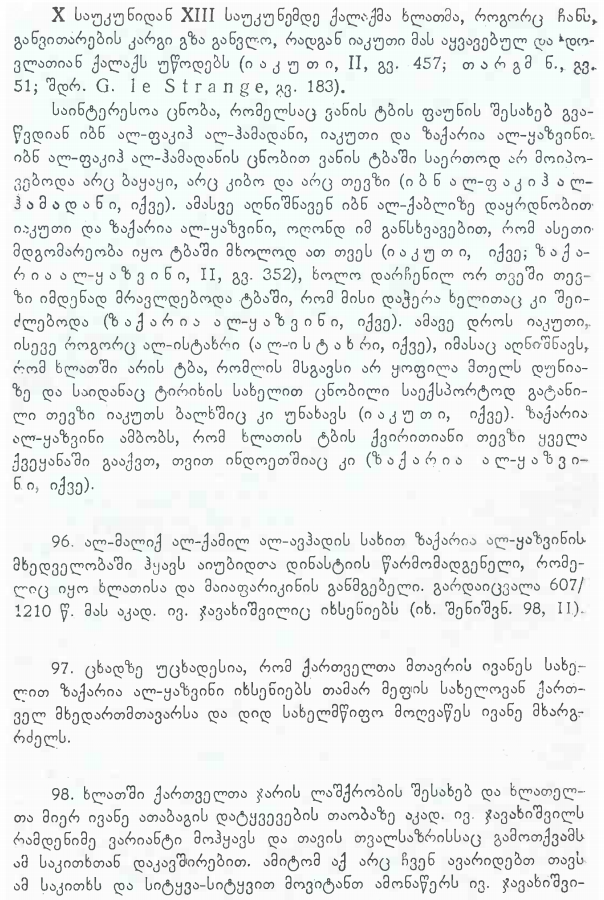 X საუკუნიდან XIII საუკუნემდე ქალაქმა ხლათმა, როგორც ჩანს,
განვითარების კარგი გზა განვლო, რადგან იაკუთი მას აყვავებულ და დო-
ვლათიან ქალაქს უწოდებს (ი ა კ უ თ ი, II, გვ. 457; თ ა რ გ მ ნ., გვ.
51; შდრ. G. l e S t r a n g e, გვ. 183).
საინტერესოა ცნობა, რომელსაც ვანის ტბის ფაუნის შესახებ გვა-
წვდიან იბნ ალ-ფაკიჰ ალ-ჰამადანი, იაკუთი და ზაქარია ალ-ყაზვინი.
იბნ ალ-ფაკიჰ ალ-ჰამადანის ცნობით ვანის ტბაში საერთოდ არ მოიპო-
ვებოდა არც ბაყაყი, არც კიბო და არც თევზი (ი ბ ნ ა ლ-ფ ა კ ი ჰ ა ლ-
ჰ ა მ ა დ ა ნ ი, იქვე). ამასვე აღნიშნავენ იბნ ალ-ქაბლიზე დაყრდნობით
იაკუთი და ზაქარია ალ-ყაზვინი, ოღონდ იმ განსხვავებით, რომ ასეთი
მდგომარეობა იყო ტბაში მხოლოდ ათ თვეს (ი ა კ უ თ ი, იქვე; ზ ა ქ ა-
რ ი ა ა ლ-ყ ა ზ ვ ი ნ ი, II, გვ. 352), ხოლო დარჩენილ ორ თვეში თევ-
ზი იმდენად მრავლდებოდა ტბაში, რომ მისი დაჭერა ხელითაც კი შეი-
ძლებოდა (ზ ა ქ ა რ ი ა ა ლ-ყ ა ზ ვ ი ნ ი, იქვე). ამავე დროს იაკუთი,
ისევე როგორც ალ-ისტახრი (ა ლ-ი ს ტ ა ხ რ ი, იქვე), იმასაც აღნიშნავს,
რომ ხლათში არის ტბა, რომლის მსგავსი არ ყოფილა მთელს დუნია-
ზე და საიდანაც ტირიხის სახელით ცნობილი საექსპორტოდ გატანი-
ლი თევზი იაკუთს ბალხშიც კი უნახავს (ი ა კ უ თ ი, იქვე). ზაქარია
ალ-ყაზვინი ამბობს, რომ ხლათის ტბის ქვირითიანი თევზი ყველა
ქვეყანაში გააქვთ, თვით ინდოეთშიაც კი (ზ ა ქ ა რ ი ა ა ლ-ყ ა ზ ვ ი-
ნ ი, იქვე).
96. ალ-მალიქ ალ-ქამილ ალ-ავჰადის სახით ზაქარია ალ-ყაზვინის
მხედველობაში ჰყავს აიუბიდთა დინასტიის წარმომადგენელი, რომე-
ლიც იყო ხლათისა და მაიაფარიკინის განმგებელი. გარდაიცვალა 607/
1210 წ. მას აკად. ივ. ჯავახიშვილიც იხსენიებს (იხ. შენიშვნ. 98, II).
97. ცხადზე უცხადესია, რომ ქართველთა მთავრის ივანეს სახე-
ლით ზაქარია ალ-ყაზვინი იხსენიებს თამარ მეფის სახელოვან ქართ-
ველ მხედართმთავარსა და დიდ სახელმწიფო მოღვაწეს ივანე მხარგ-
რძელს.
98. ხლათში ქართველთა ჯარის ლაშქრობის შესახებ და ხლათელ-
თა მიერ ივანე ათაბაგის დატყვევების თაობაზე აკად. ივ. ჯავახიშვილს
რამდენიმე ვარიანტი მოჰყავს და თავის თვალსაზრისსაც გამოთქვამს
ამ საკითხთან დაკავშირებით. ამიტომ აქ არც ჩვენ ავარიდებთ თავს
ამ საკითხს და სიტყვა-სიტყვით მოვიტანთ ამონაწერს ივ. ჯავახიშვი-